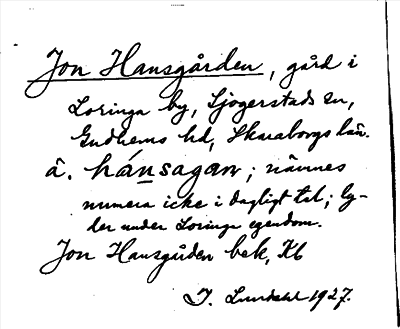 Jon Hansgården, gård i
Loringa by, Sjogerstads sn,
Gudhems hd, Skaraborgs län.
â. hánsagaṟ; nännes
numera icke i dagligt tal; ly-
der under Loringa egendom.
Jon Hansgården bek, Kb
I. Lundahl 1927.